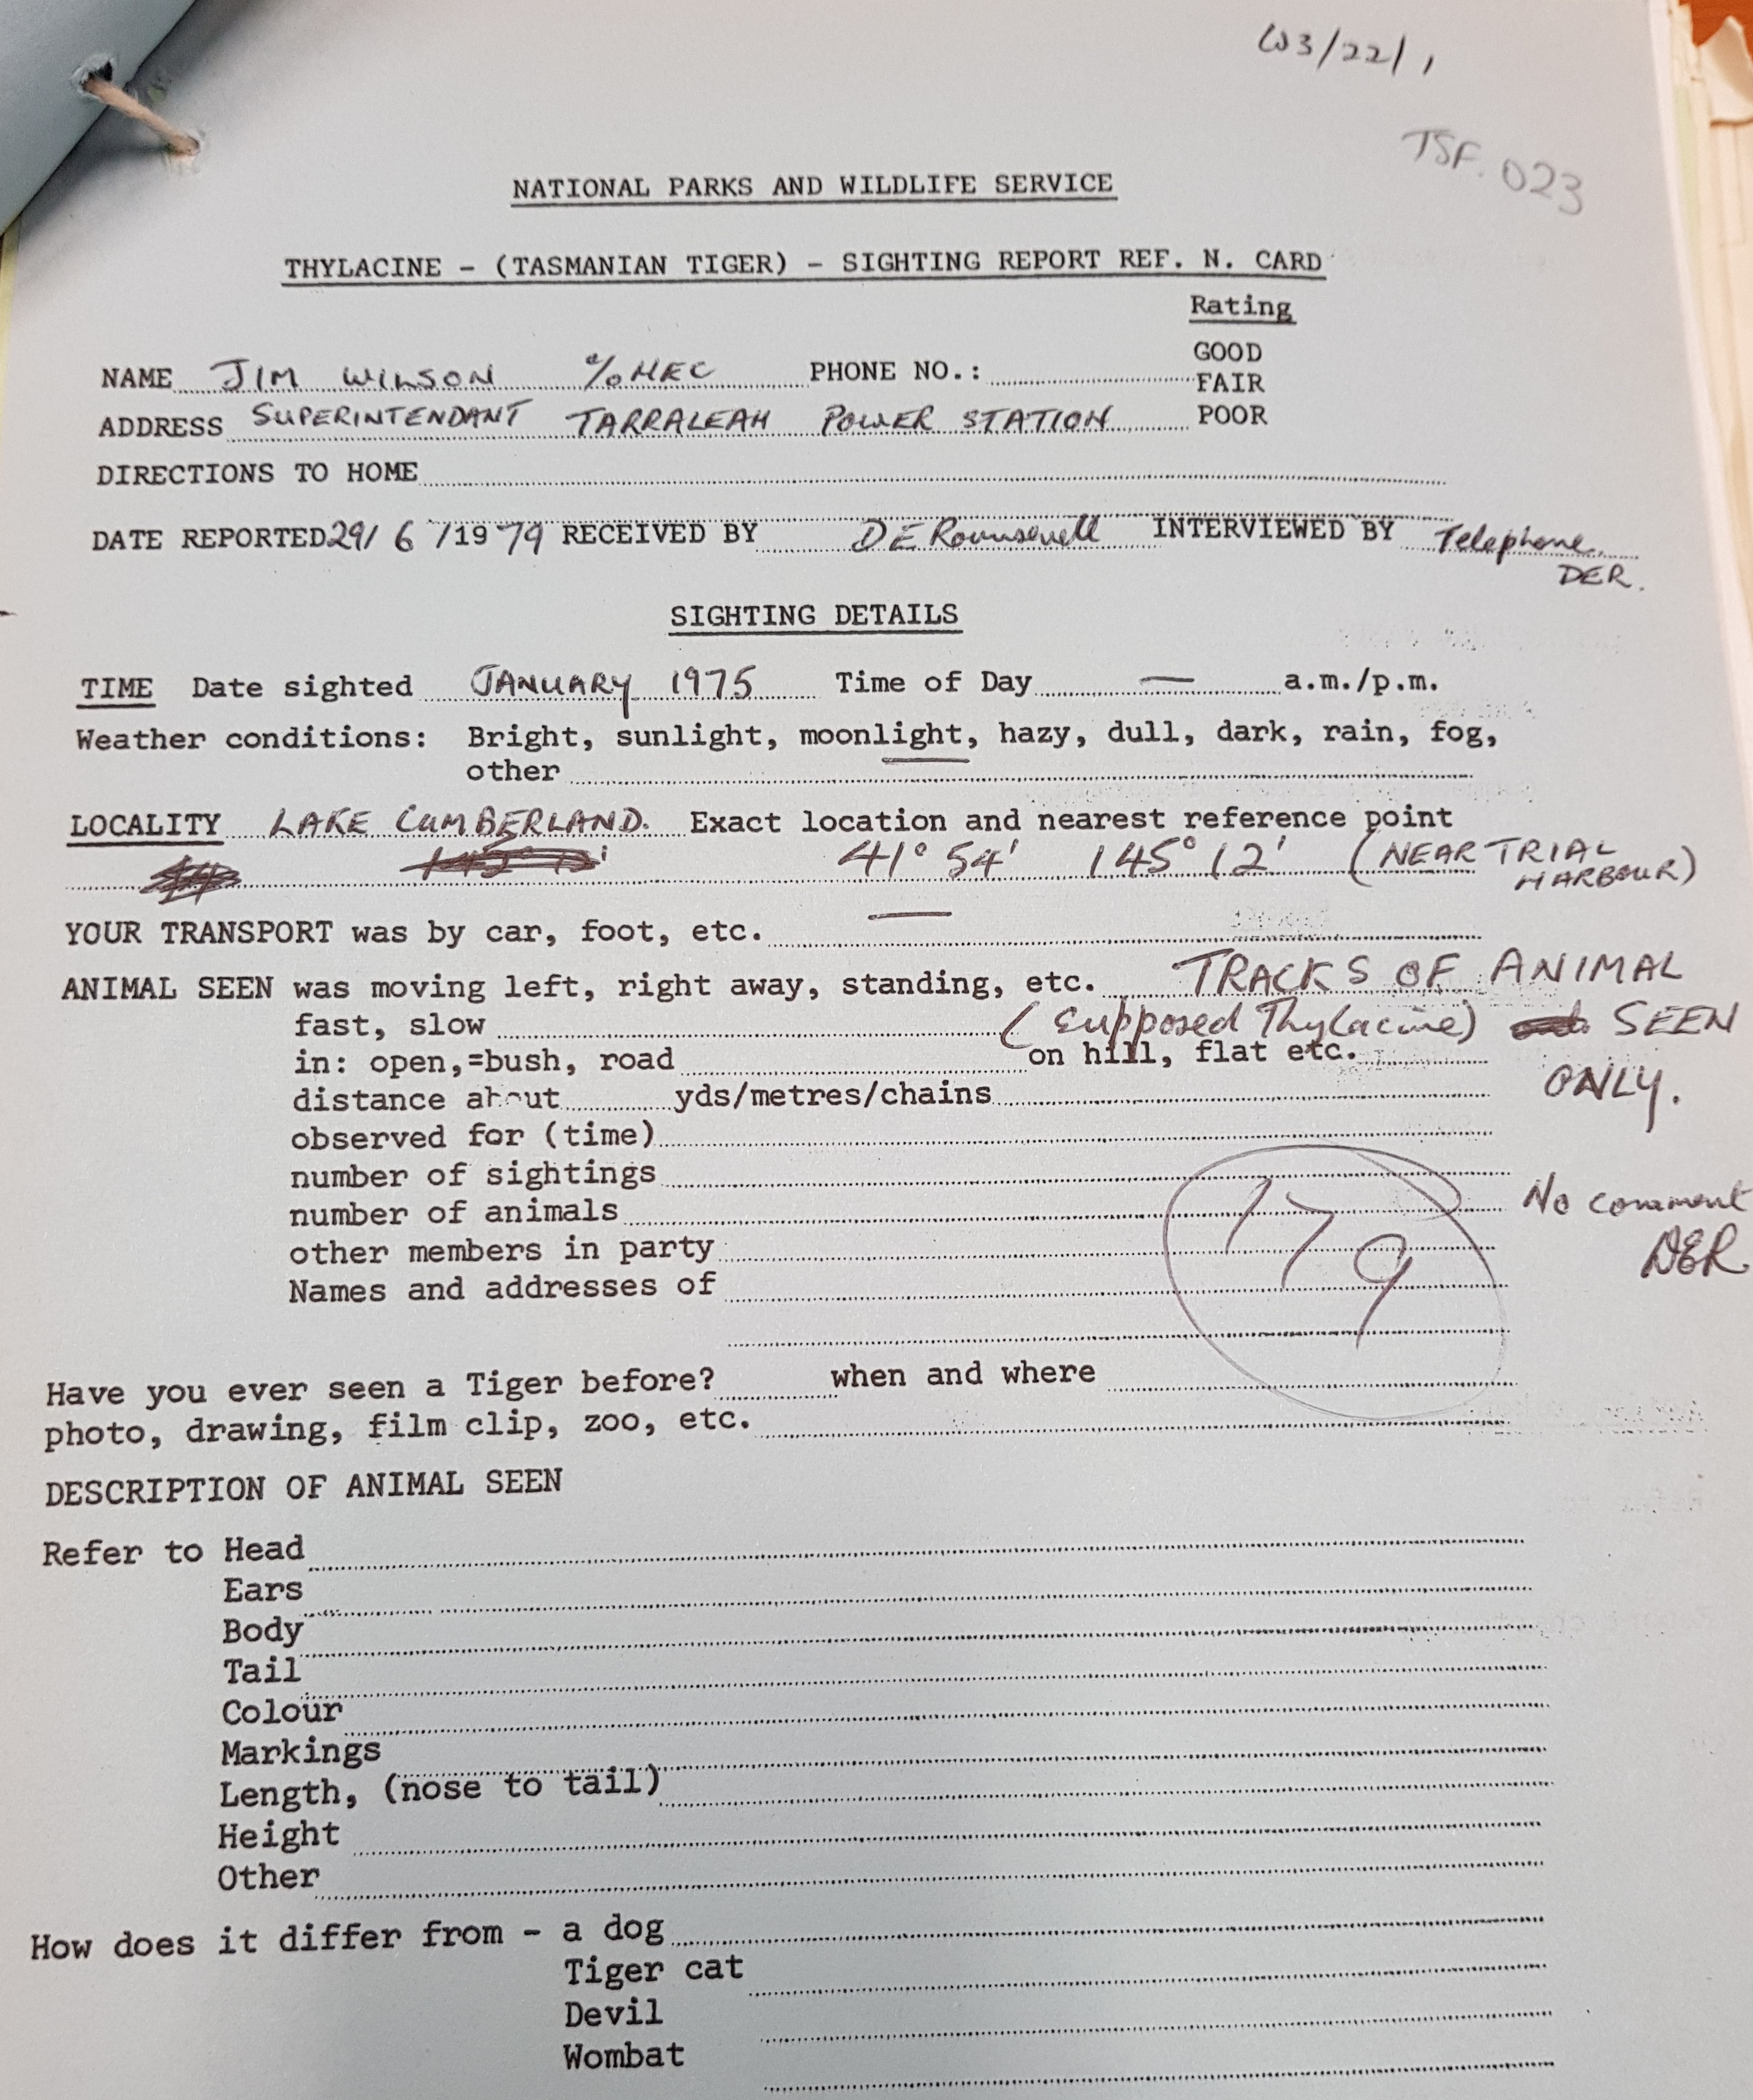 W3/22/1
TSF. 023
NATIONAL PARKS AND WILDLIFE SERVICE
THYLACINE - (TASMANIAN TIGER) - SIGHTING REPORT REF. N. CARD
Rating
GOOD
NAME JIM WILSON c/o HEC PHONE NO.: FAIR
ADDRESS SUPERINTENDANT TARRALEAH POWER STATION POOR
DIRECTIONS TO HOME
DATE REPORTED 29/ 6 /19 79 RECEIVED BY D E Rounsevell INTERVIEWED BY Telephone
DER.
SIGHTING DETAILS
TIME Date sighted JANUARY 1975 Time of Day — a.m./p.m.
Weather conditions: Bright, sunlight, moonlight, hazy, dull, dark, rain, fog,
other
LOCALITY LAKE CUMBERLAND. Exact location and nearest reference point
41° 54' 145° 12' (NEAR TRIAL
HARBOUR)
YOUR TRANSPORT was by car, foot, etc. —
ANIMAL SEEN was moving left, right away, standing, etc. TRACKS OF ANIMAL
fast, slow (Supposed Thylacine) SEEN
in: open,=bush, road on hill, flat etc.
ONLY.
distance about yds/metres/chains
observed for (time)
number of sightings
179
No comment
number of animals
DER
other members in party
Names and addresses of
Have you ever seen a Tiger before? when and where
photo, drawing, film clip, zoo, etc.
DESCRIPTION OF ANIMAL SEEN
Refer to Head
Ears
Body
Tail
Colour
Markings
Length, (nose to tail)
Height
Other
How does it differ from - a dog
Tiger cat
Devil
Wombat